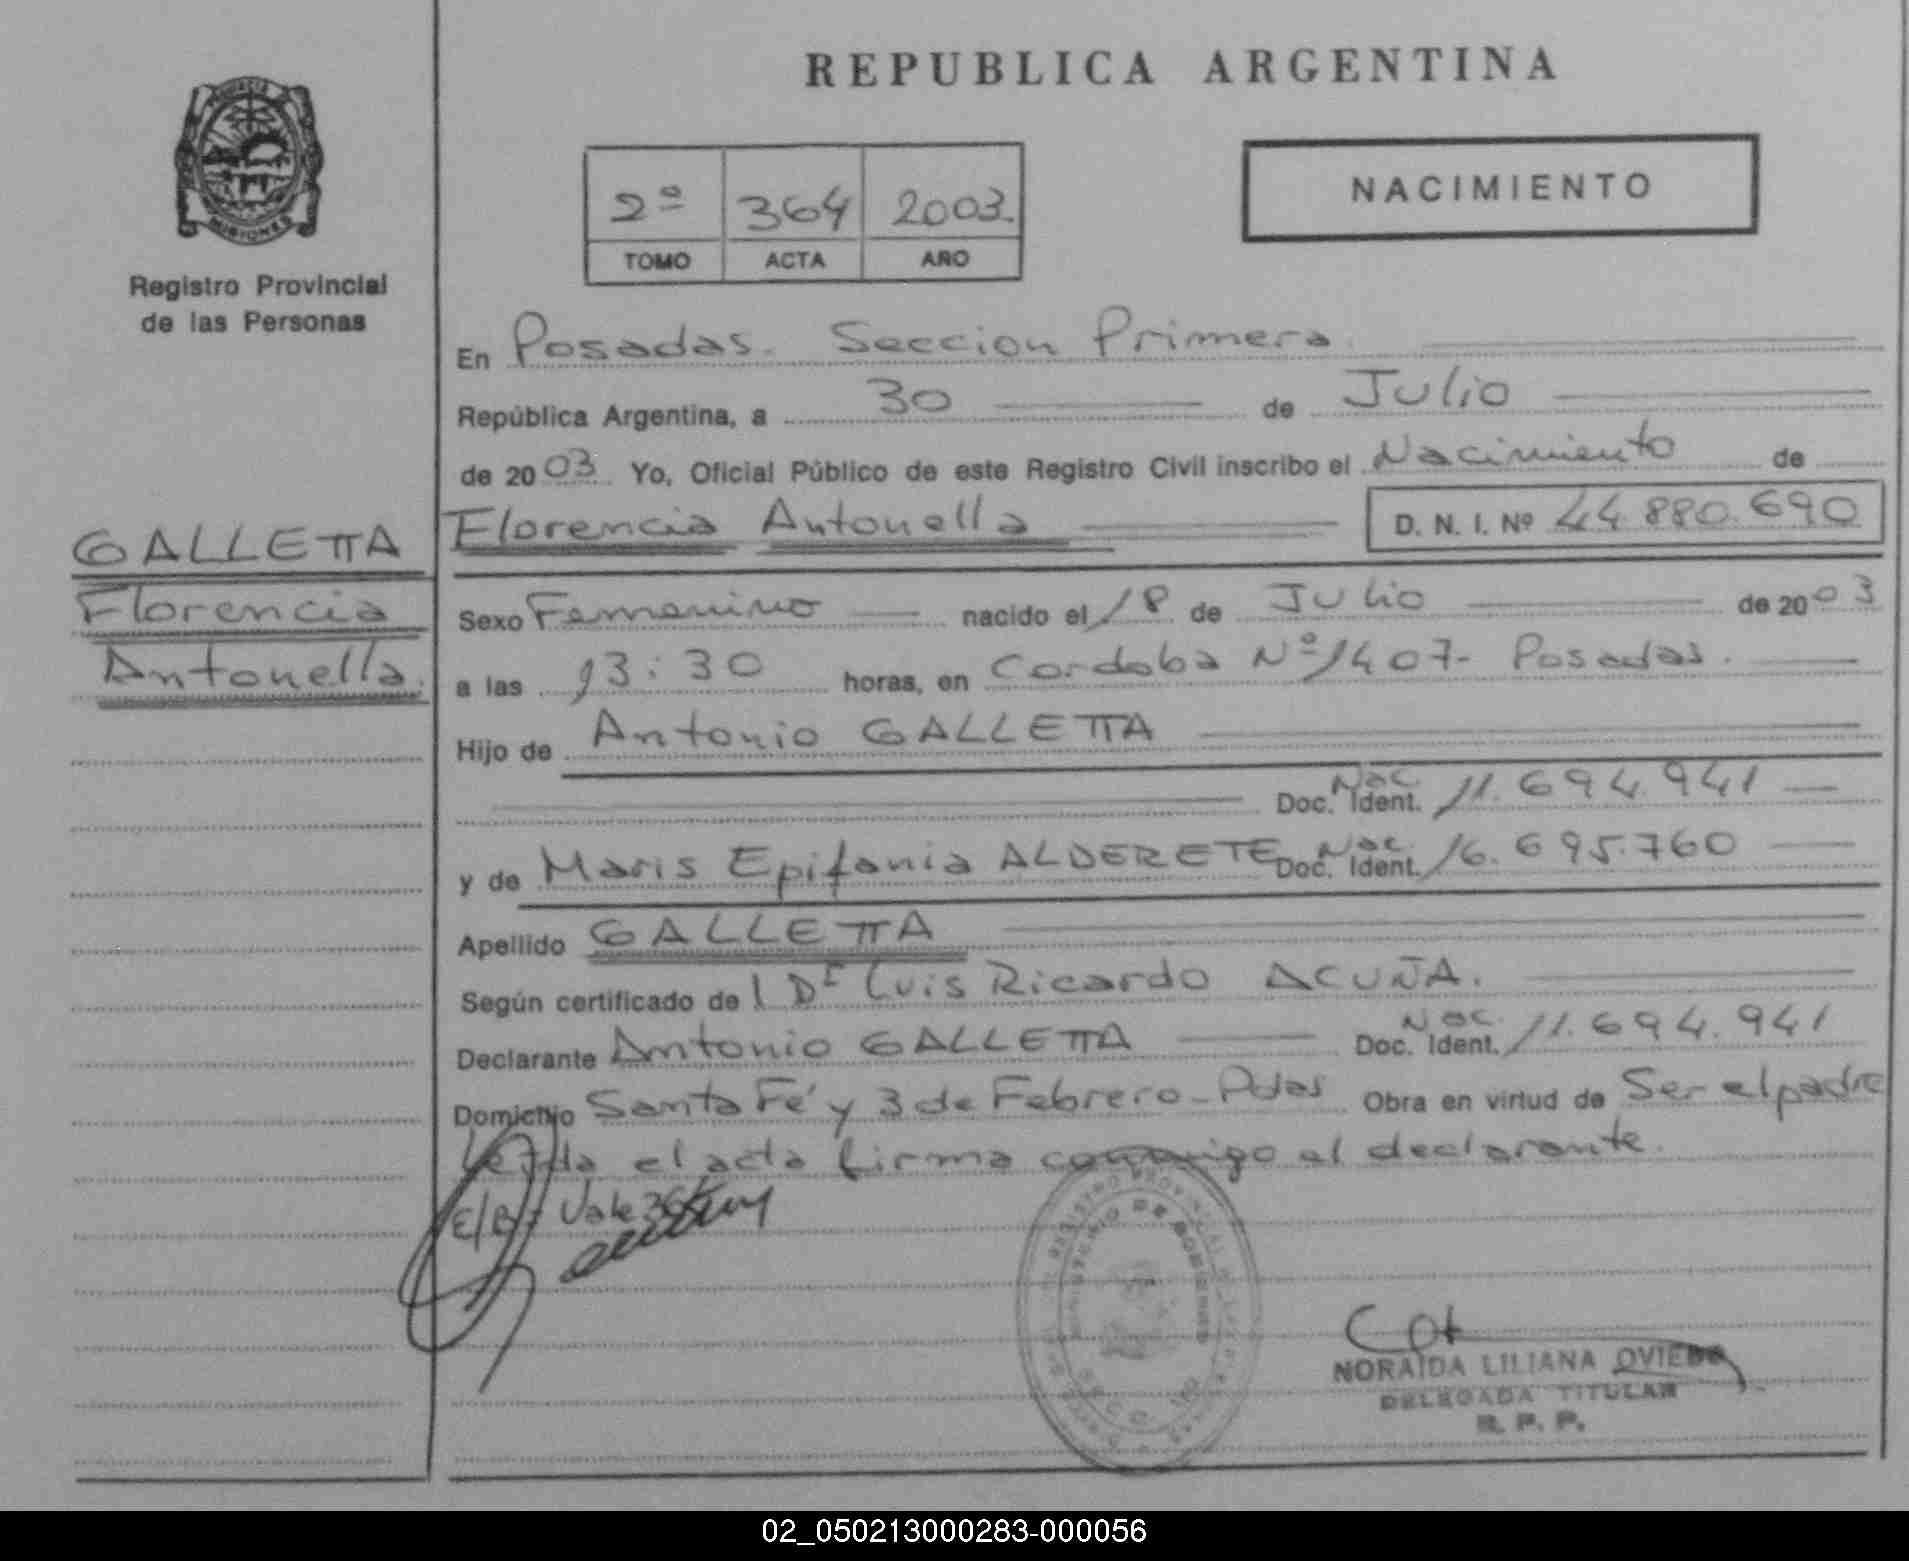 REPUBLICA ARGENTINA
PROVINCIA DE MISIONES
Registro Provincial
de las Personas
2º 364 2003.
TOMO ACTA AÑO
NACIMIENTO
En Posadas. Seccion Primera.
República Argentina, a 30 de Julio
de 2003 Yo, Oficial Público de este Registro Civil inscribo el Nacimiento de
Florencia Antonella D. N. I. Nº 44.880.690
GALLETTA
Florencia
Antonella.
Sexo Femenino nacido el 18 de Julio de 2003
a las 13:30 horas, en Cordoba Nº 1407- Posadas.
Hijo de Antonio GALLETTA
Doc. Nac. Ident. 11.694.941
y de Maris Epifania ALDERETE Doc. Nac. Ident. 16.695.760
Apellido GALLETTA
Según certificado del Dr Luis Ricardo ACUÑA.
Declarante Antonio GALLETTA Doc. Nac. Ident. 11.694.941
Domicilio Santa Fé y 3 de Febrero - Pdas Obra en virtud de Ser el padre
Leida el acta firma conmigo el declarante.
E/B: Vale 364
REGISTRO PROVINCIAL DE LAS PERSONAS
MINISTERIO DE GOBIERNO
NORAIDA LILIANA OVIEDO
DELEGADA TITULAR
R. P. P.
02_050213000283-000056